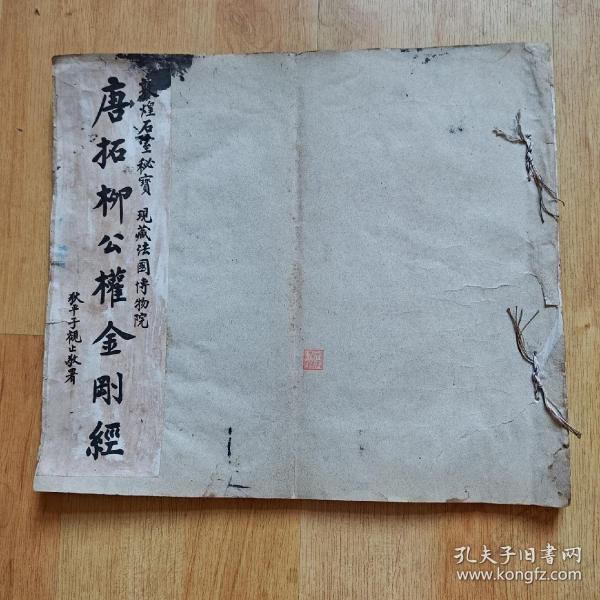 敦煌石室秘寶 現藏法国博物院
唐拓柳公權金剛經
狄平子觀止敬署
孔夫子旧书网
www.kongfz.com